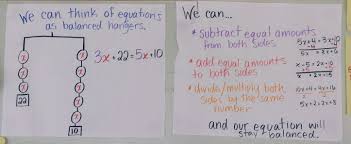 We can think of equations
as balanced hangers.
3x + 22 = 5x + 10
x
x
x
22
x
x
x
x
x
10
We can...
* Subtract equal amounts
from both sides
* add equal amounts
to both sides
* divide/multiply both
sides by the same
number
and our equation will
stay balanced.